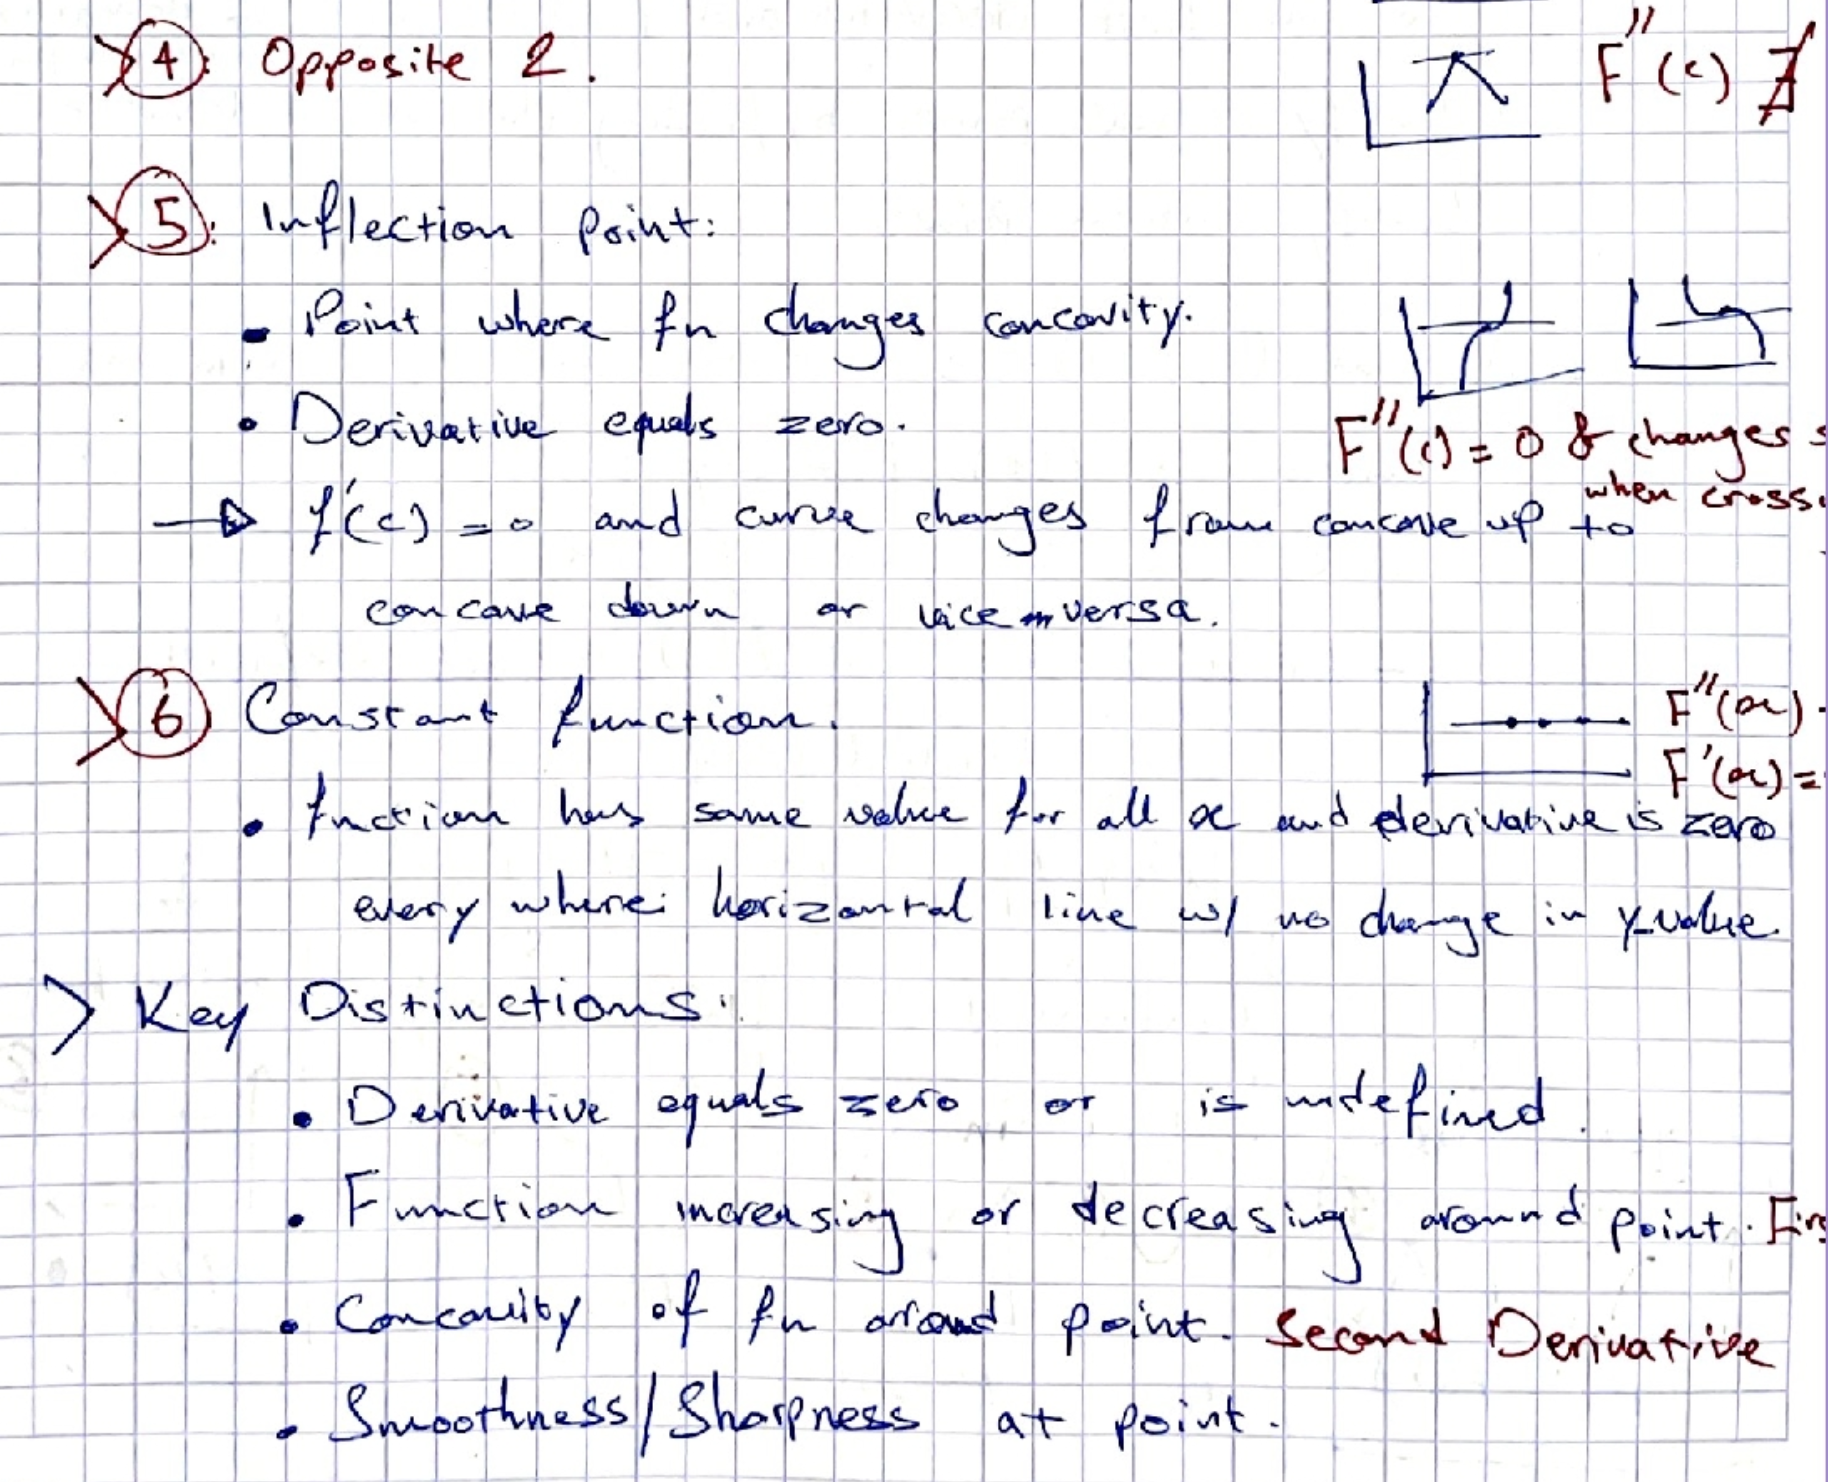 4: Opposite 2.
F''(c) ∄
5: Inflection point:
• Point where fn changes concavity.
• Derivative equals zero.
F''(c) = 0 & changes
when cross
→ f'(c) = 0 and curve changes from concave up to
concave down or vice versa.
6 Constant function.
F''(x)
F'(x) =
• function has same value for all x and derivative is zero
every where: horizontal line w/ no change in y-value.
> Key Distinctions:
• Derivative equals zero or is undefined.
• Function increasing or decreasing around point. Firs
• Concavity of fn around point. Second Derivative
• Smoothness/Sharpness at point.